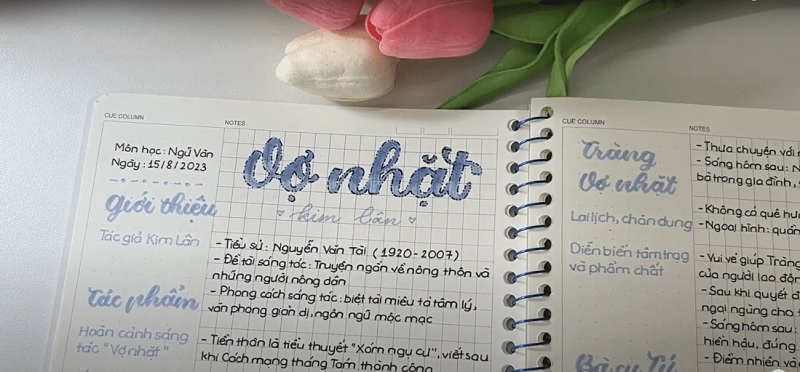 CUE COLUMN
NOTES
Môn học: Ngữ Văn
Ngày: 15/8/2023
Vợ nhặt
Kim Lân
Giới thiệu
Tác giả Kim Lân
- Tiểu sử: Nguyễn Văn Tài (1920-2007)
- Đề tài sáng tác: Truyện ngắn về nông thôn và
những người nông dân
- Phong cách sáng tác: biệt tài miêu tả tâm lý,
văn phong giản dị, ngôn ngữ mộc mạc
Tác phẩm
Hoàn cảnh sáng
tác "Vợ nhặt"
- Tiền thân là tiểu thuyết "Xóm ngụ cư", viết sau
khi Cách mạng tháng Tám thành công
CUE COLUMN
NOTES
Tràng
Vợ nhặt
- Thưa chuyện với
- Sáng hôm sau:
bà trong gia đình,
Lai lịch, chân dung
- Không có quê
- Ngoại hình:
Diễn biến tâm trạng
và phẩm chất
- Vui vẻ giúp Tràng
của người lao động
- Sau khi quyết
ngại ngùng cho
- Sáng hôm sau:
hiền hậu, đúng
- Điềm nhiên và
Bà cụ Tứ